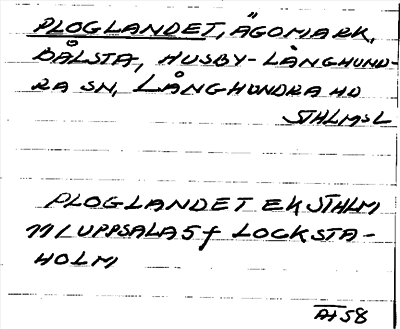 PLOGLANDET, ÄGOMARK,
BÅLSTA, HUSBY-LÅNGHUND-
RA SN, LÅNGHUNDRA HD
STHLMSL
PLOGLANDET EK STHLM
77/UPPSALA 5f LOCKSTA-
HOLM
AH 58